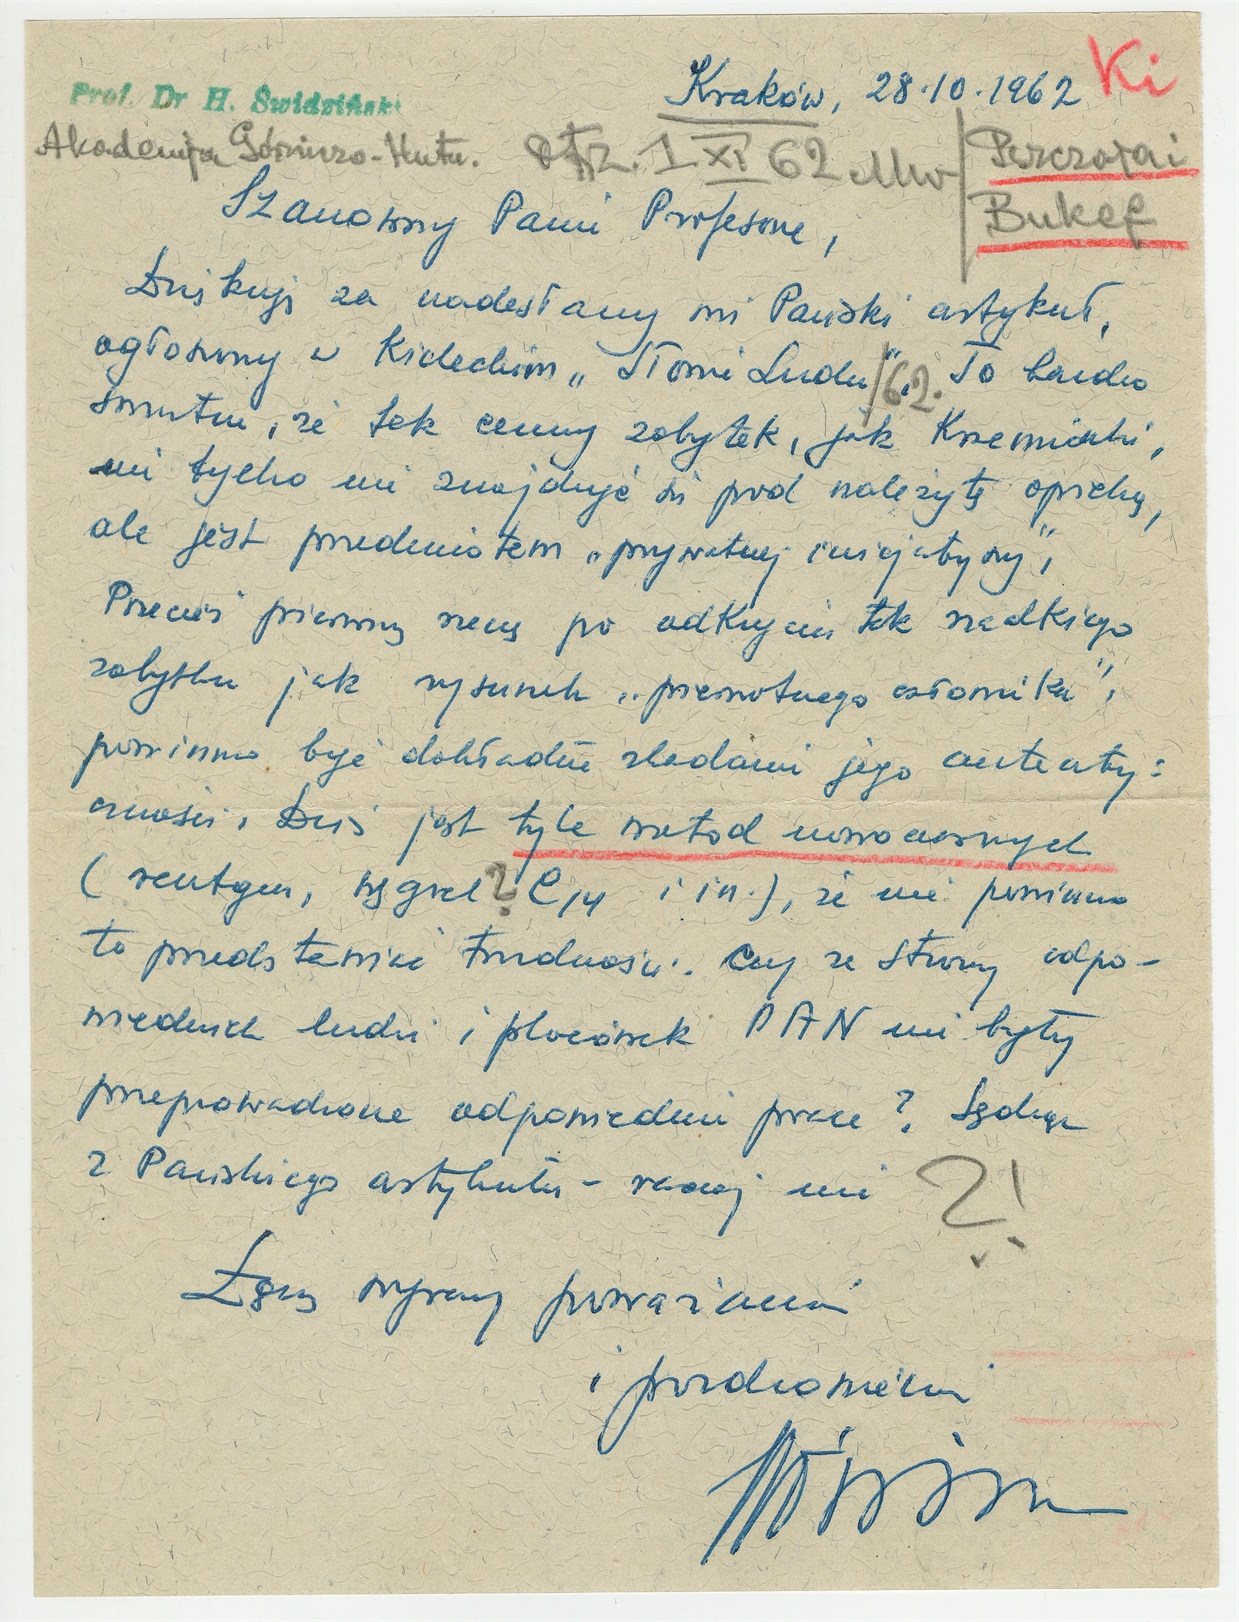 Ki
Prof. Dr H. Świdziński
Kraków, 28.10.1962
Akademja Górniczo-Hutn. otrz. 1 XI 62
Bukef
Szanowny Panie Profesorze,
Dziękuję za nadesłany mi Pański artykuł,
ogłoszony w Kieleckim „Słowie Ludu"/62. To bardzo
smutne, że tak cenny zabytek, jak Krzemionki,
nie tylko nie znajduje się pod należytą opieką,
ale jest przedmiotem „prywatnej inicjatywy".
Przecież pierwszą rzeczą po odkryciu tak rzadkiego
zabytku jak rysunek „pierwotnego człowieka",
powinno być dokładne zbadanie jego autenty=
czności. Dziś jest tyle metod nowoczesnych
(rentgen, węgiel ? C14 i in.), że nie powinno
to przedstawiać trudności. Czy ze strony odpo-
wiednich ludzi i placówek PAN nie były
przeprowadzone odpowiednie prace? Sądząc
z Pańskiego artykułu - raczej nie ?!
Łączę wyrazy poważania
i pozdrowienia